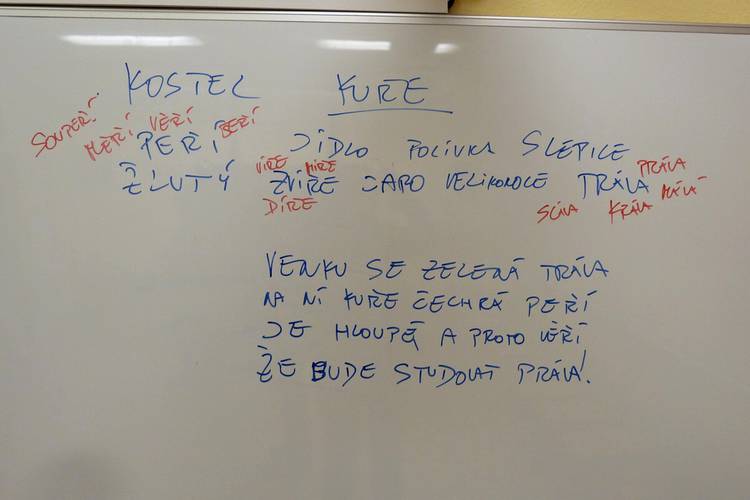 KOSTEL KUŘE
SOUPEŘÍ MĚŘÍ VĚŘÍ BEŘÍ
PEŘÍ JÍDLO POLÍVKA SLEPICE
VÍŘE MÍŘE PRÁVA
ŽLUTÝ ZVÍŘE JARO VELIKONOCE TRÁVA MÁVÁ
DÍŘE SLÁVA KRÁVA
VENKU SE ZELENÁ TRÁVA
NA NÍ KUŘE ČECHRÁ PEŘÍ
JE HLOUPÉ A PROTO VĚŘÍ
ŽE BUDE STUDOVAT PRÁVA!